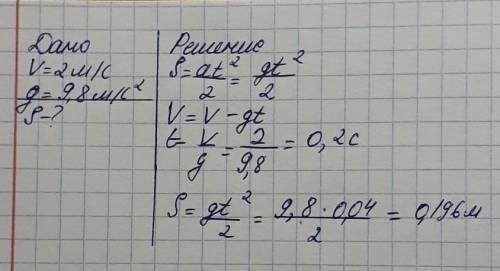 Дано
V=2м/с
g=9,8м/с²
S-?
Решение
S=at²/2=gt²/2
V=V-gt
t=V/g=2/9,8=0,2с
S=gt²/2=9,8·0,04/2=0,196м